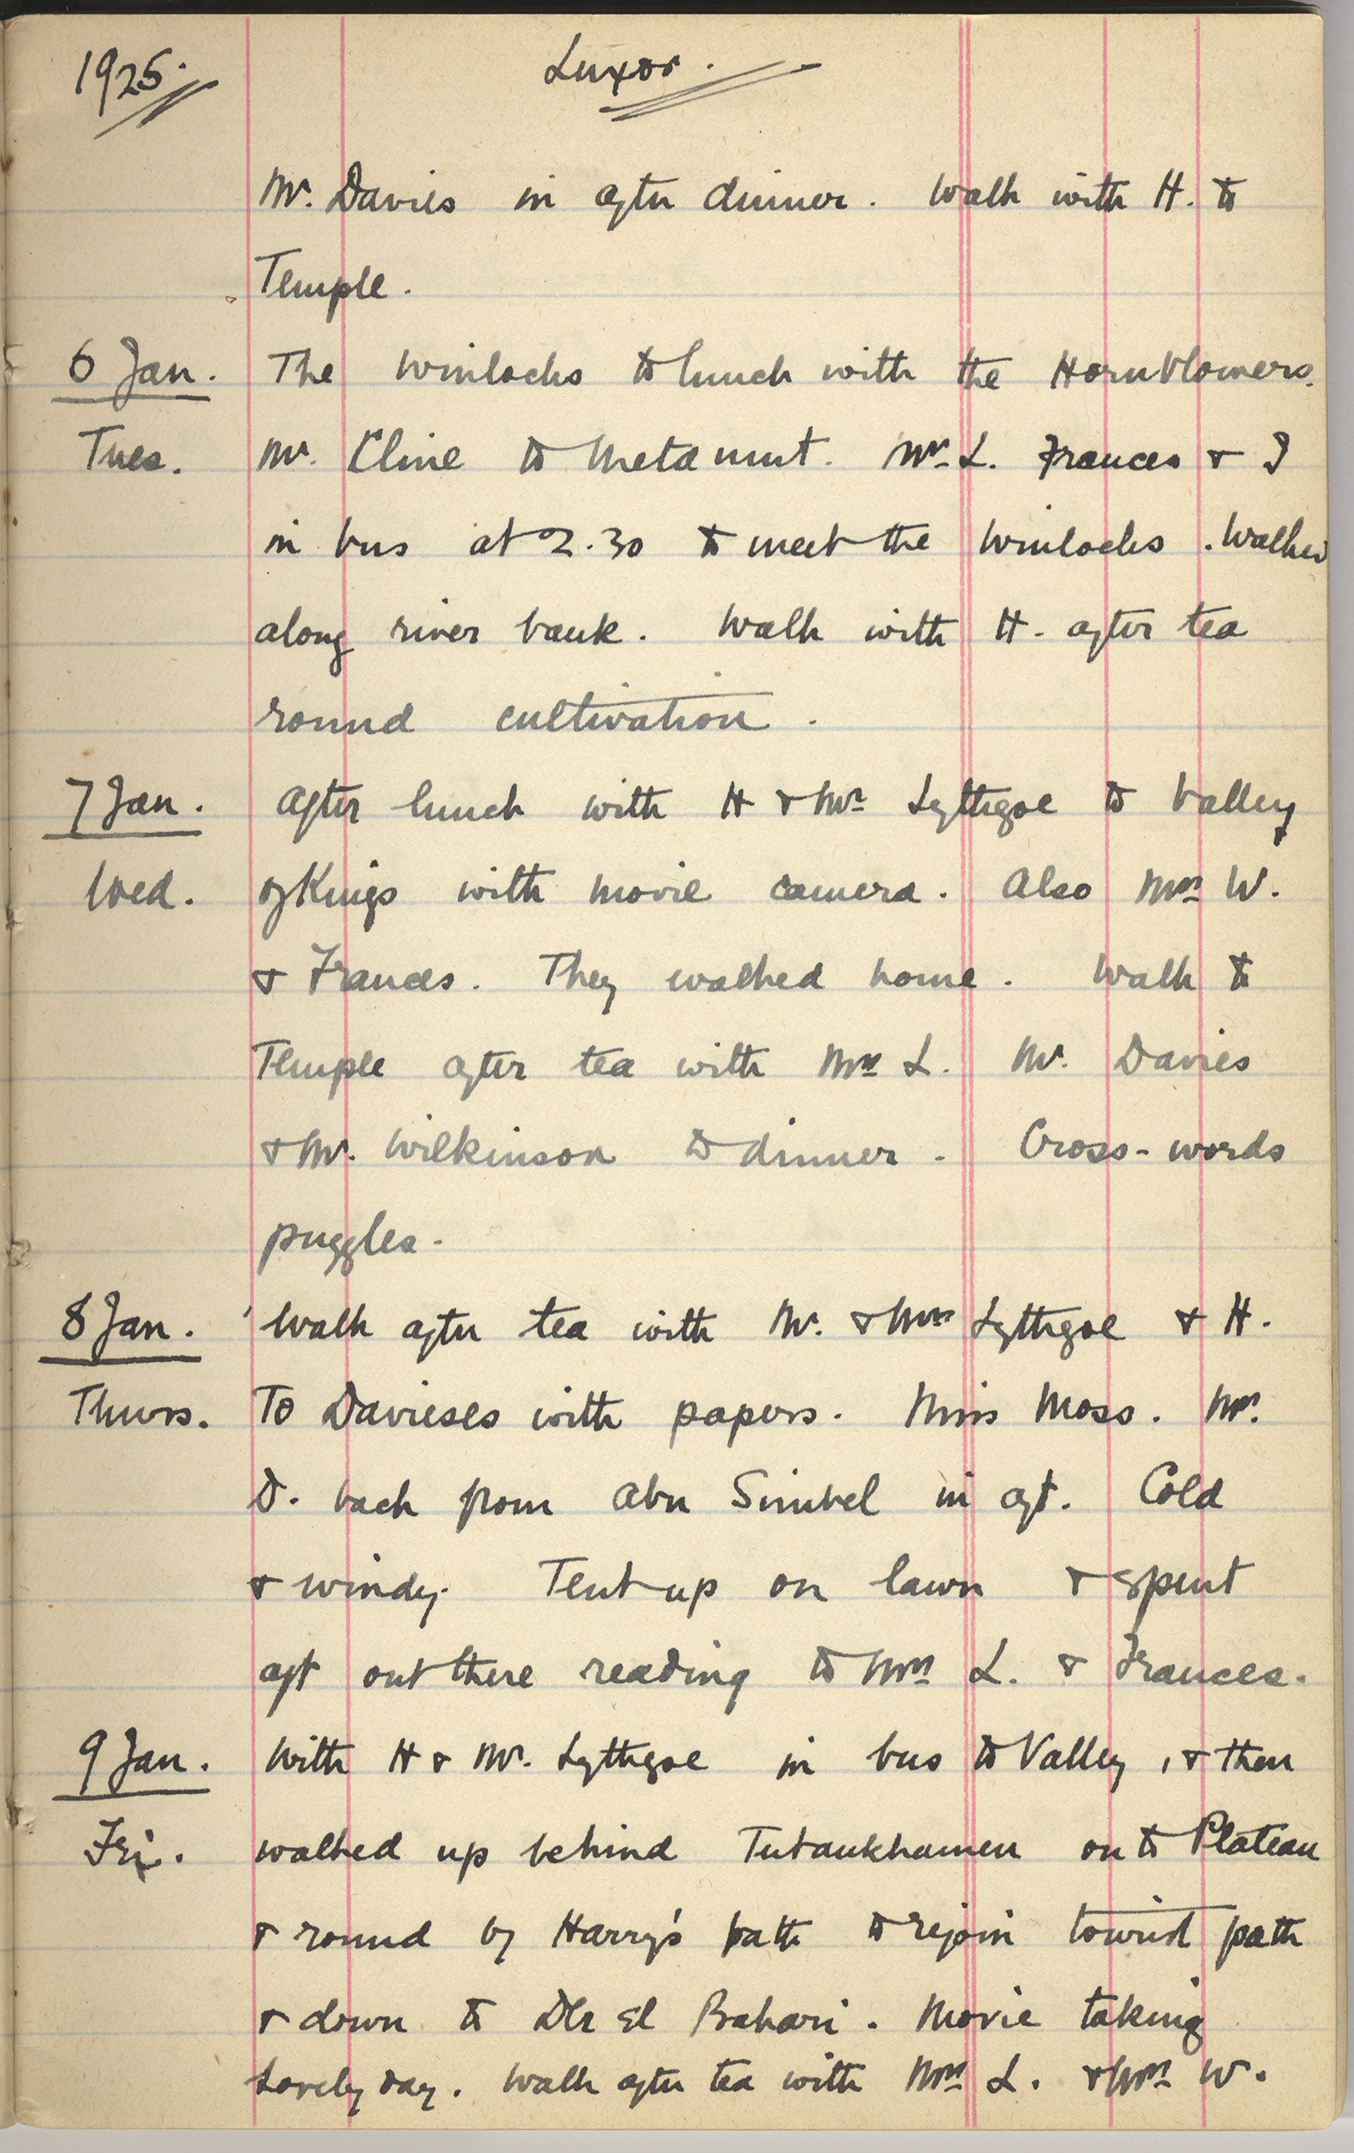 1925. Luxor.
Mr. Davies in after dinner. Walk with H. to
Temple.
6 Jan. The Winlocks to lunch with the Hornblowers.
Tues. Mr. Cline to Metamut. Mrs L. Frances & I
in bus at 2.30 to meet the Winlocks. Walked
along river bank. Walk with H. after tea
round cultivation.
7 Jan. After lunch with H & Mr Lythgoe to Valley
Wed. of Kings with movie camera. Also Mrs W.
& Frances. They walked home. Walk to
Temple after tea with Mrs L. Mr. Davies
& Mr. Wilkinson to dinner. Cross-words
puzzles.
8 Jan. Walk after tea with Mr. & Mrs Lythgoe & H.
Thurs. To Davieses with papers. Miss Moss. Mr.
D. back from Abu Simbel in aft. Cold
& windy. Tent up on lawn & spent
aft out there reading to Mrs L. & Frances.
9 Jan. With H & Mr. Lythgoe in bus to Valley, & then
Fri. walked up behind Tutankhamen on to Plateau
& round by Harry's path to rejoin tourist path
& down to Der el Bahari. Movie taking
Lovely day. Walk after tea with Mrs L. & Mrs W.